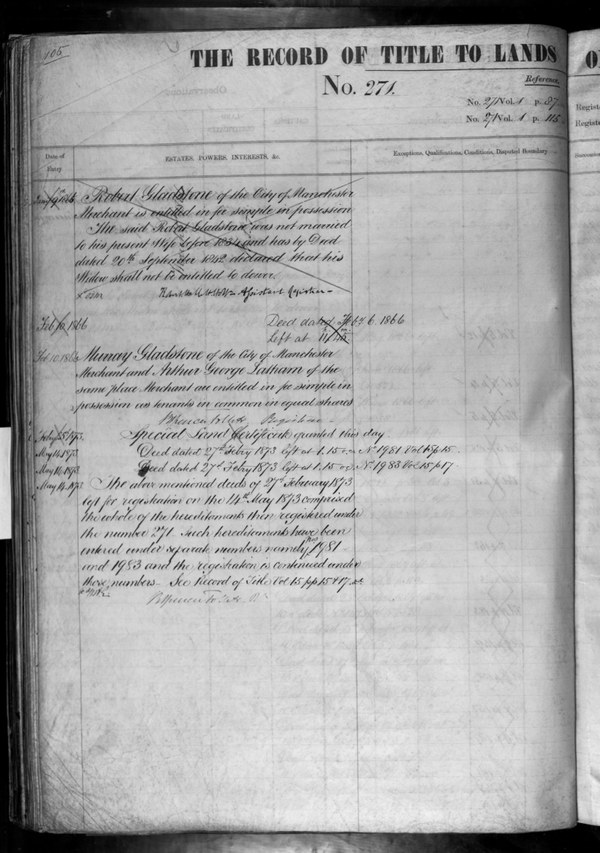 105
THE RECORD OF TITLE TO LANDS
No. 271.
Reference.
No. 271 Vol. 1 p. 87
No. 271 Vol. 1 p. 115
Date of
Entry
ESTATES, POWERS, INTERESTS, &c.
Exceptions, Qualifications, Conditions, Disputed Boundary
1866 Robert Gladstone of the City of Manchester
Merchant is entitled in fee simple in possession
The said Robert Gladstone was not married
to his present Wife before 1834 and has by Deed
dated 20th September 1842 declared that his
Widow shall not be entitled to dower
Assistant Registrar
Feb 10 1866 Deed dated Feb 6 1866
Left at 11.15
Feb. 10. 1866 Murray Gladstone of the City of Manchester
Merchant and Arthur George Latham of the
same place Merchant are entitled in fee simple in
possession as tenants in common in equal shares
Registrar
Febry 25 1873 Special Land Certificate granted this day
May 14. 1873 Deed dated 27th Febry 1873 left at 1.15 No 1981 Vol 15 p 15
May 14. 1873 Deed dated 27th Febry 1873 left at 1.15 No 1983 Vol. 15 p 17
May 14. 1873 The above mentioned deeds of 27th February 1873
left for registration on the 14th May 1873 comprised
the whole of the hereditaments then registered under
the number 271. Such hereditaments have been
entered under separate numbers namely Nos 1981
and 1983 and the registration is continued under
those numbers. See Record of Title Vol 15 pp 15 & 17